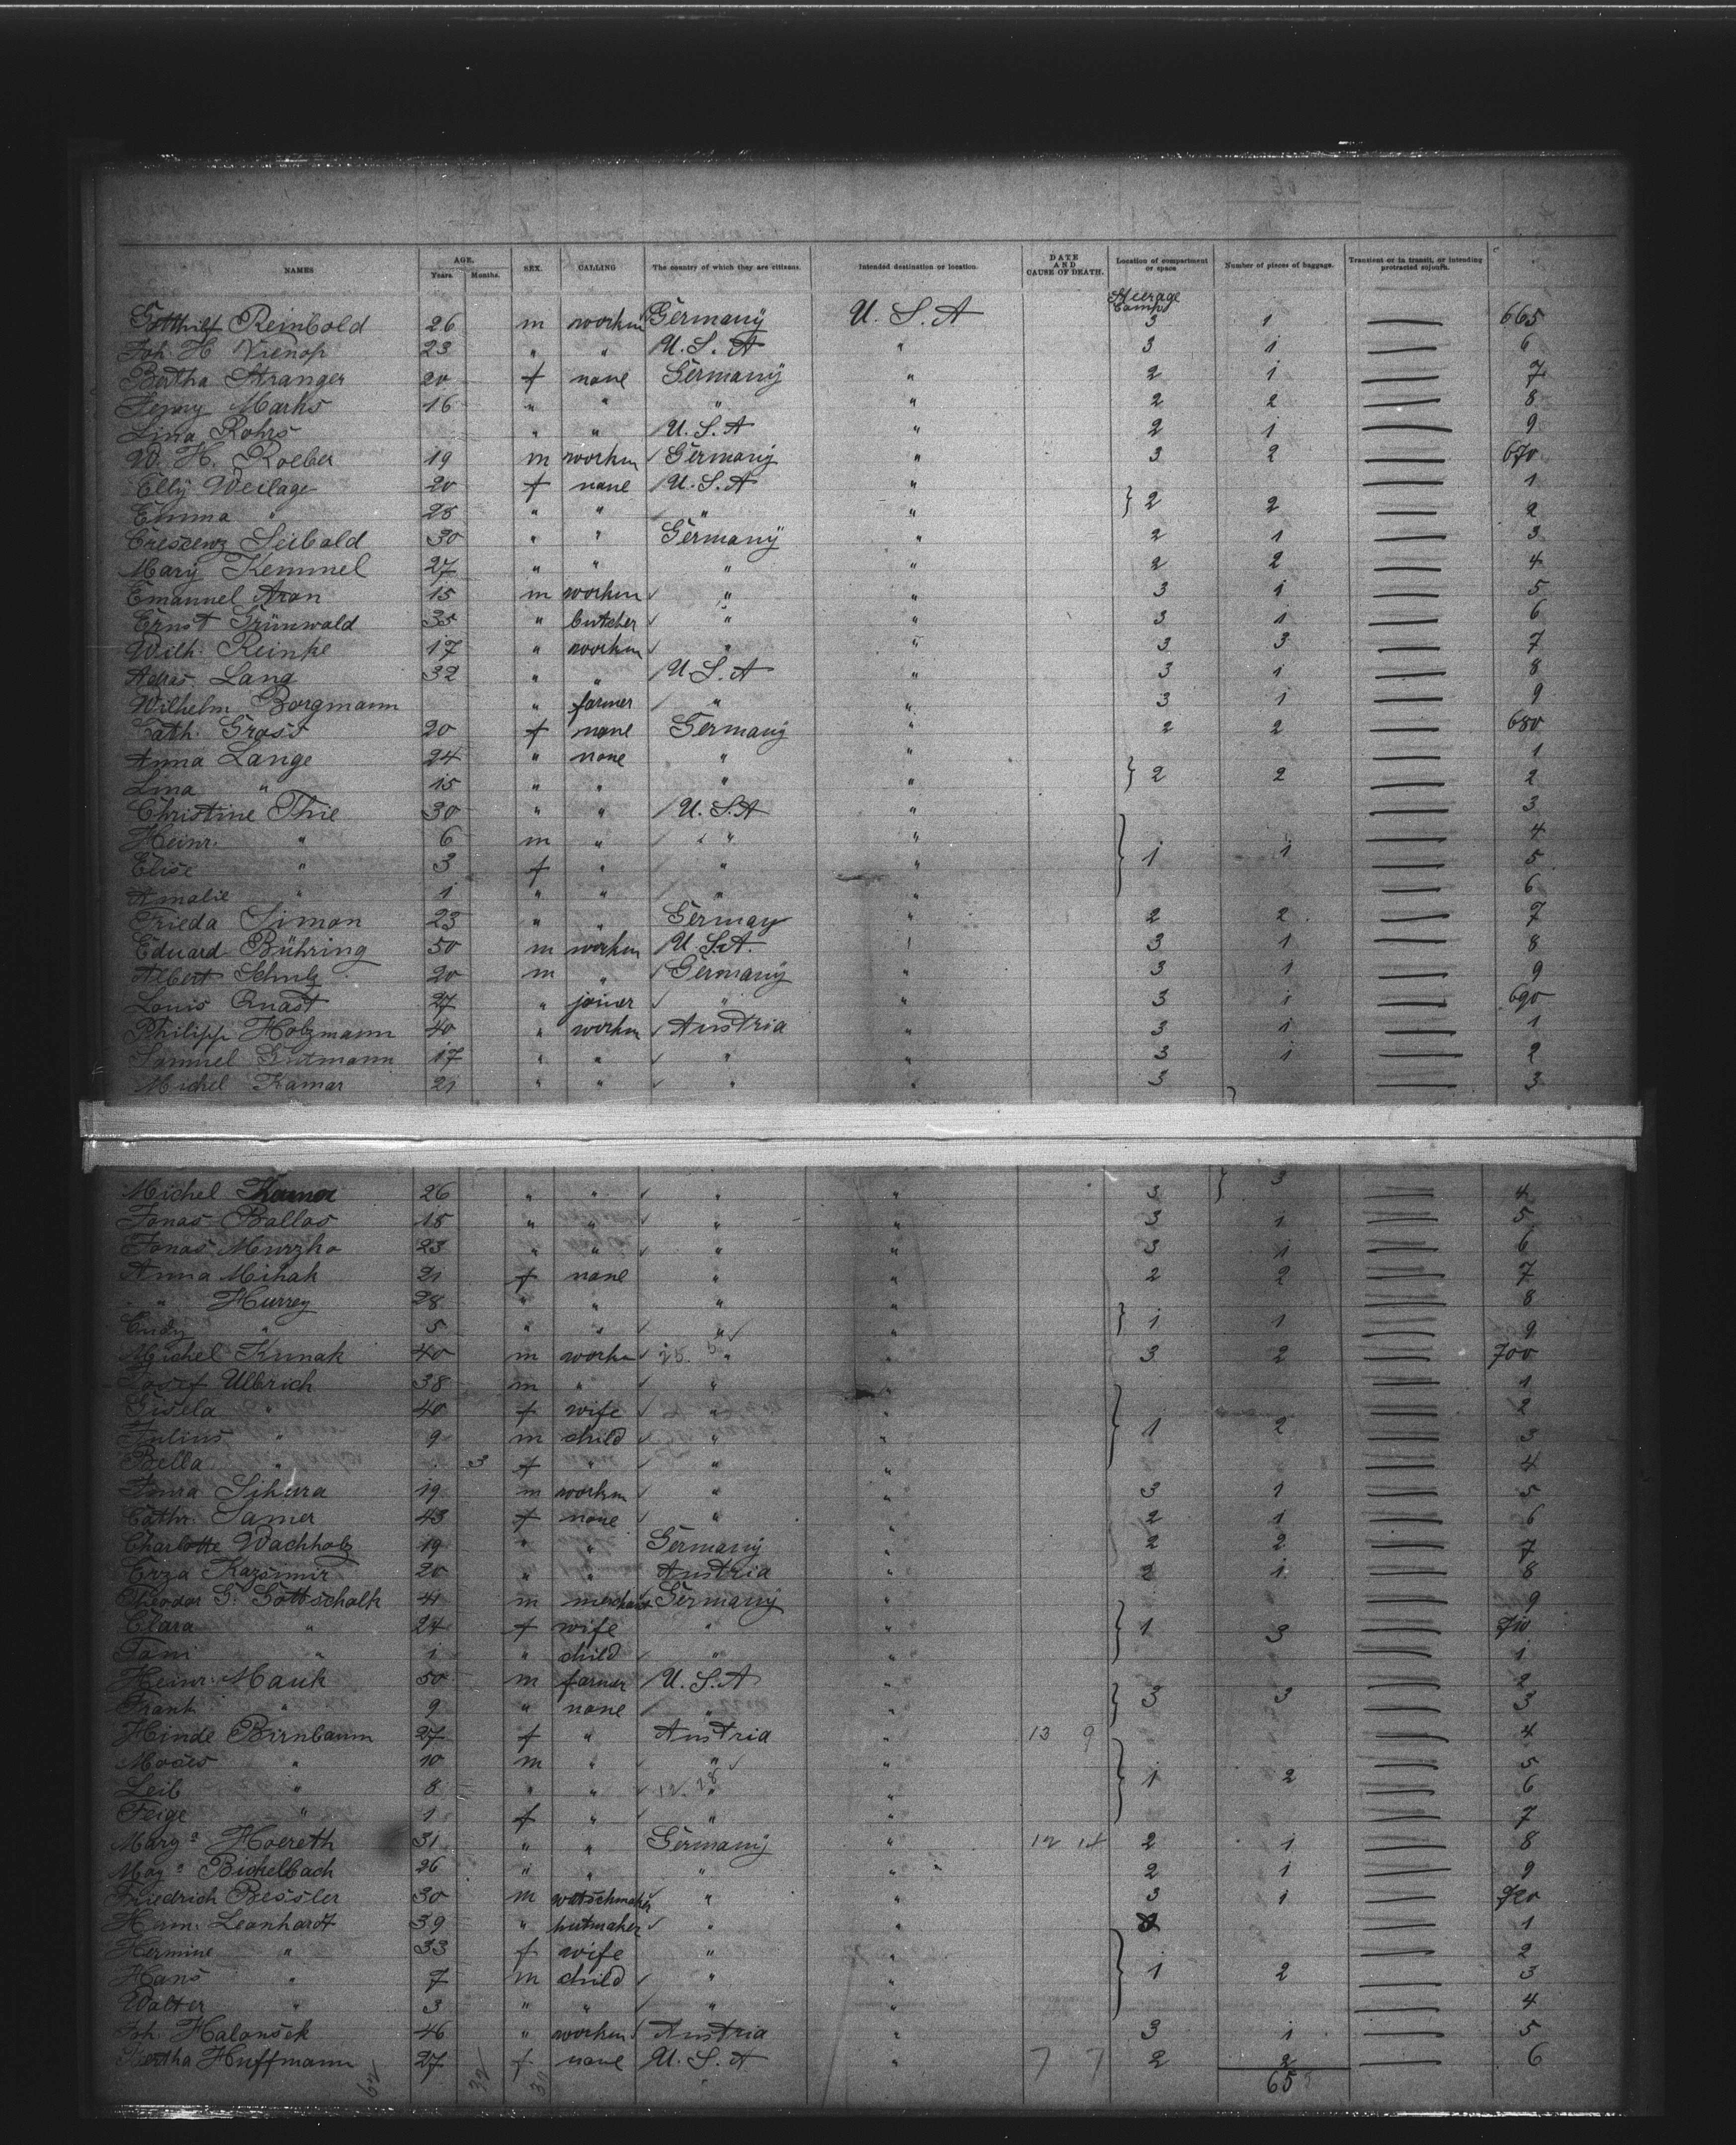 NAMES AGE. Years. Months. SEX. CALLING The country of which they are citizens. Intended destination or location. DATE AND CAUSE OF DEATH. Location of compartment or space Number of pieces of baggage. Transient or in transit, or intending protracted sojourn.
Steerage
Comp
Gotthilf Reinbold 26 m workm Germany U. S. A 3 1 — 665
Joh. H. Vienop 23 " " / U. S. A " 3 1 — 6
Bertha Stranger 20 f none Germany " 2 1 — 7
Jenny Marks 16 " " " " 2 2 — 8
Lina Rohrs " " / U. S. A " 2 1 — 9
W. H. Roeber 19 m workm / Germany " 3 2 — 670
Elly Weilage 20 f none / U. S. A " — 1
Emma " 25 " " / " " } 2 2 — 2
Crescenz Seibold 30 " " Germany " 2 1 — 3
Mary Kemmel 27 " " " " 2 2 — 4
Emanuel Aron 15 m workm ✓ " " 3 1 — 5
Ernst Grünwald 35 " butcher ✓ " " 3 1 — 6
Wilh. Reinke 17 " workm ✓ " " 3 3 — 7
Adras Lang 32 " " / U. S. A " 3 1 — 8
Wilhelm Borgmann " farmer / " " 3 1 — 9
Cath. Gross 20 f none Germany " 2 2 — 680
Anna Lange 24 " none " " — 1
Lina " 15 " " " " } 2 2 — 2
Christine Thie 30 " " / U. S. A " — 3
Heinr. " 6 m " / " " — 4
Elise " 3 f " / " " } 1 1 — 5
Amalie " 1 " " / " " — 6
Frieda Simon 23 " " Germany " 2 2 — 7
Eduard Bühring 50 m workm / U. S. A. " 3 1 — 8
Albert Schulz 20 m " / Germany " 3 1 — 9
Louis Quast 27 " joiner ✓ " " 3 1 — 690
Philipp Holzmann 40 " workm ✓ Austria " 3 1 — 1
Samuel Gutmann 17 " " ✓ " " 3 1 — 2
Michel Kamar 21 " " ✓ " " 3 — 3
Michel 26 " " ✓ " " 3 } 3 — 4
Jonas Ballas 18 " " ✓ " " 3 1 — 5
Jonas Murzko 23 " " ✓ " " 3 1 — 6
Anna Mihak 21 f none " " 2 2 — 7
" Hurrey 28 " " " " — 8
" 5 " " / " ✓ " } 1 1 — 9
Michel Krinak 40 m workm ✓ " " 3 2 — 700
Josef Ulbrich 38 m " ✓ " " — 1
Gisela " 40 f wife ✓ " " — 2
Julius " 9 m child ✓ " " } 1 2 — 3
Bella " 3 f " ✓ " " — 4
Sihura 19 m workm ✓ " " 3 1 — 5
Cathr. Samer 43 f none ✓ " " 2 1 — 6
Charlotte Wachholz 19 " " Germany " 2 2 — 7
Erza Kazimir 20 " " Austria " 2 1 — 8
Theodor G. Gottschalk 41 m merchant Germany " — 9
Clara " 24 f wife " " } 1 3 — 710
Fani " 1 " child ✓ " " — 1
Heinr. Mauk 50 m farmer / U. S. A " — 2
Frank " 9 " none / " " } 3 3 — 3
Hinde Birnbaum 27 f " Austria " 13 9 — 4
Moses " 10 m " ✓ " ✓ " — 5
Leib " 8 " " ✓ " " } 1 2 — 6
Feige " 1 f " ✓ " " — 7
Marga Hoereth 31 " " Germany " 12 14 2 1 — 8
Maga Bickelbach 26 " " " " 2 1 — 9
Friedrich Bessler 30 m watschmaker ✓ " " 3 1 — 720
Herm. Leonhardt 39 " hutmaker ✓ " " — 1
Hermine " 33 f wife " " — 2
Hans " 7 m child ✓ " " } 1 2 — 3
Walter " 3 " " ✓ " " — 4
Joh. Halonsek 46 " workm ✓ Austria " 3 1 — 5
Bertha Huffmann 27 f none U. S. A " 7 7 2 2 — 6
62 32 30 65